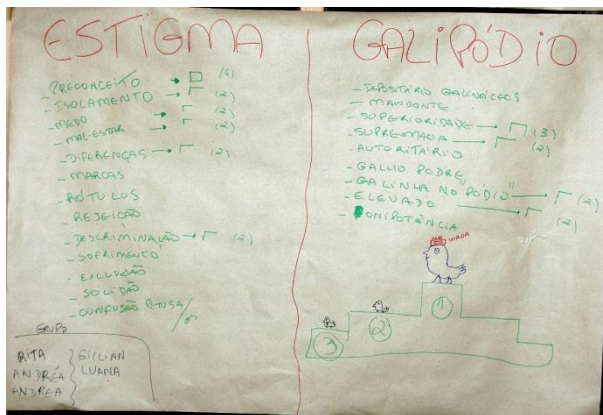 ESTIGMA
PRECONCEITO → (4)
- ISOLAMENTO → (2)
- MEDO → (2)
- MAL-ESTAR → (2)
- DIFERENÇAS → (2)
- MARCAS
- RÓTULOS
- REJEIÇÃO
- DESCRIMINAÇÃO → (2)
- SOFRIMENTO
- EXCLUSÃO
- SOLIDÃO
- CONFUSÃO
GRUPO
RITA
ANDRÉA
ANDREA
GILLIAN
LUANA
GALIPÓDIO
- DEPOSITÁRIO
- MANDANTE
- SUPERIORIDADE → (3)
- SUPREMACIA → (2)
AUTORITÁRIO
- GALHO PODRE
- "GALINHA NO PÓDIO" → (2)
- ELEVADO → (2)
- ONIPOTÊNCIA
1
2
3